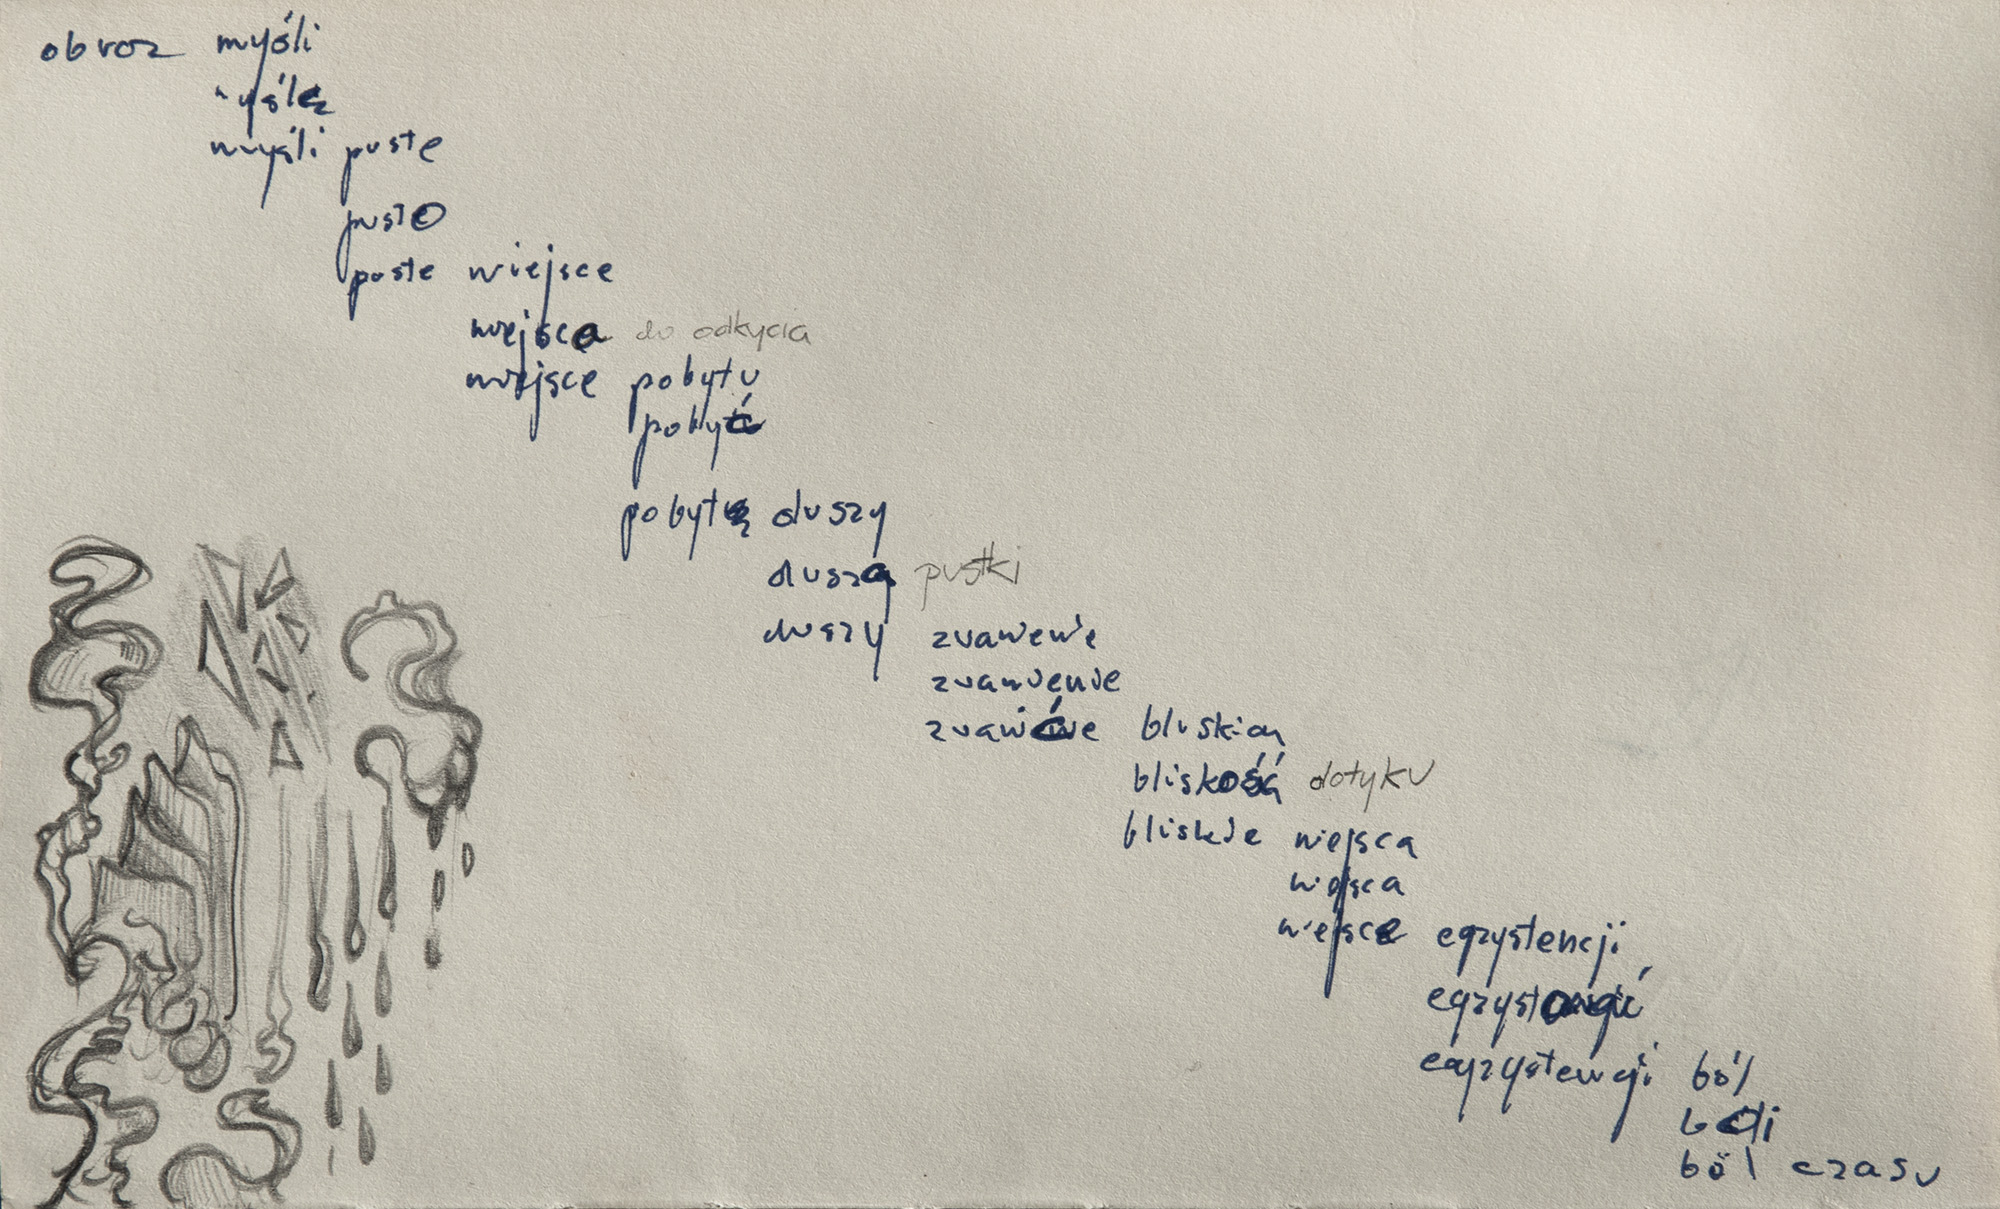 obraz myśli
myślę
myśli puste
pusto
puste miejsce
miejsca do odkycia
miejsce pobytu
pobyć
pobytu duszy
duszą pustki
duszy zranienie
zranienie
bliskich
bliskość dotyku
bliskie miejsca
miejsca
miejsce egzystencji
egzystencji ból
boli
ból czasu